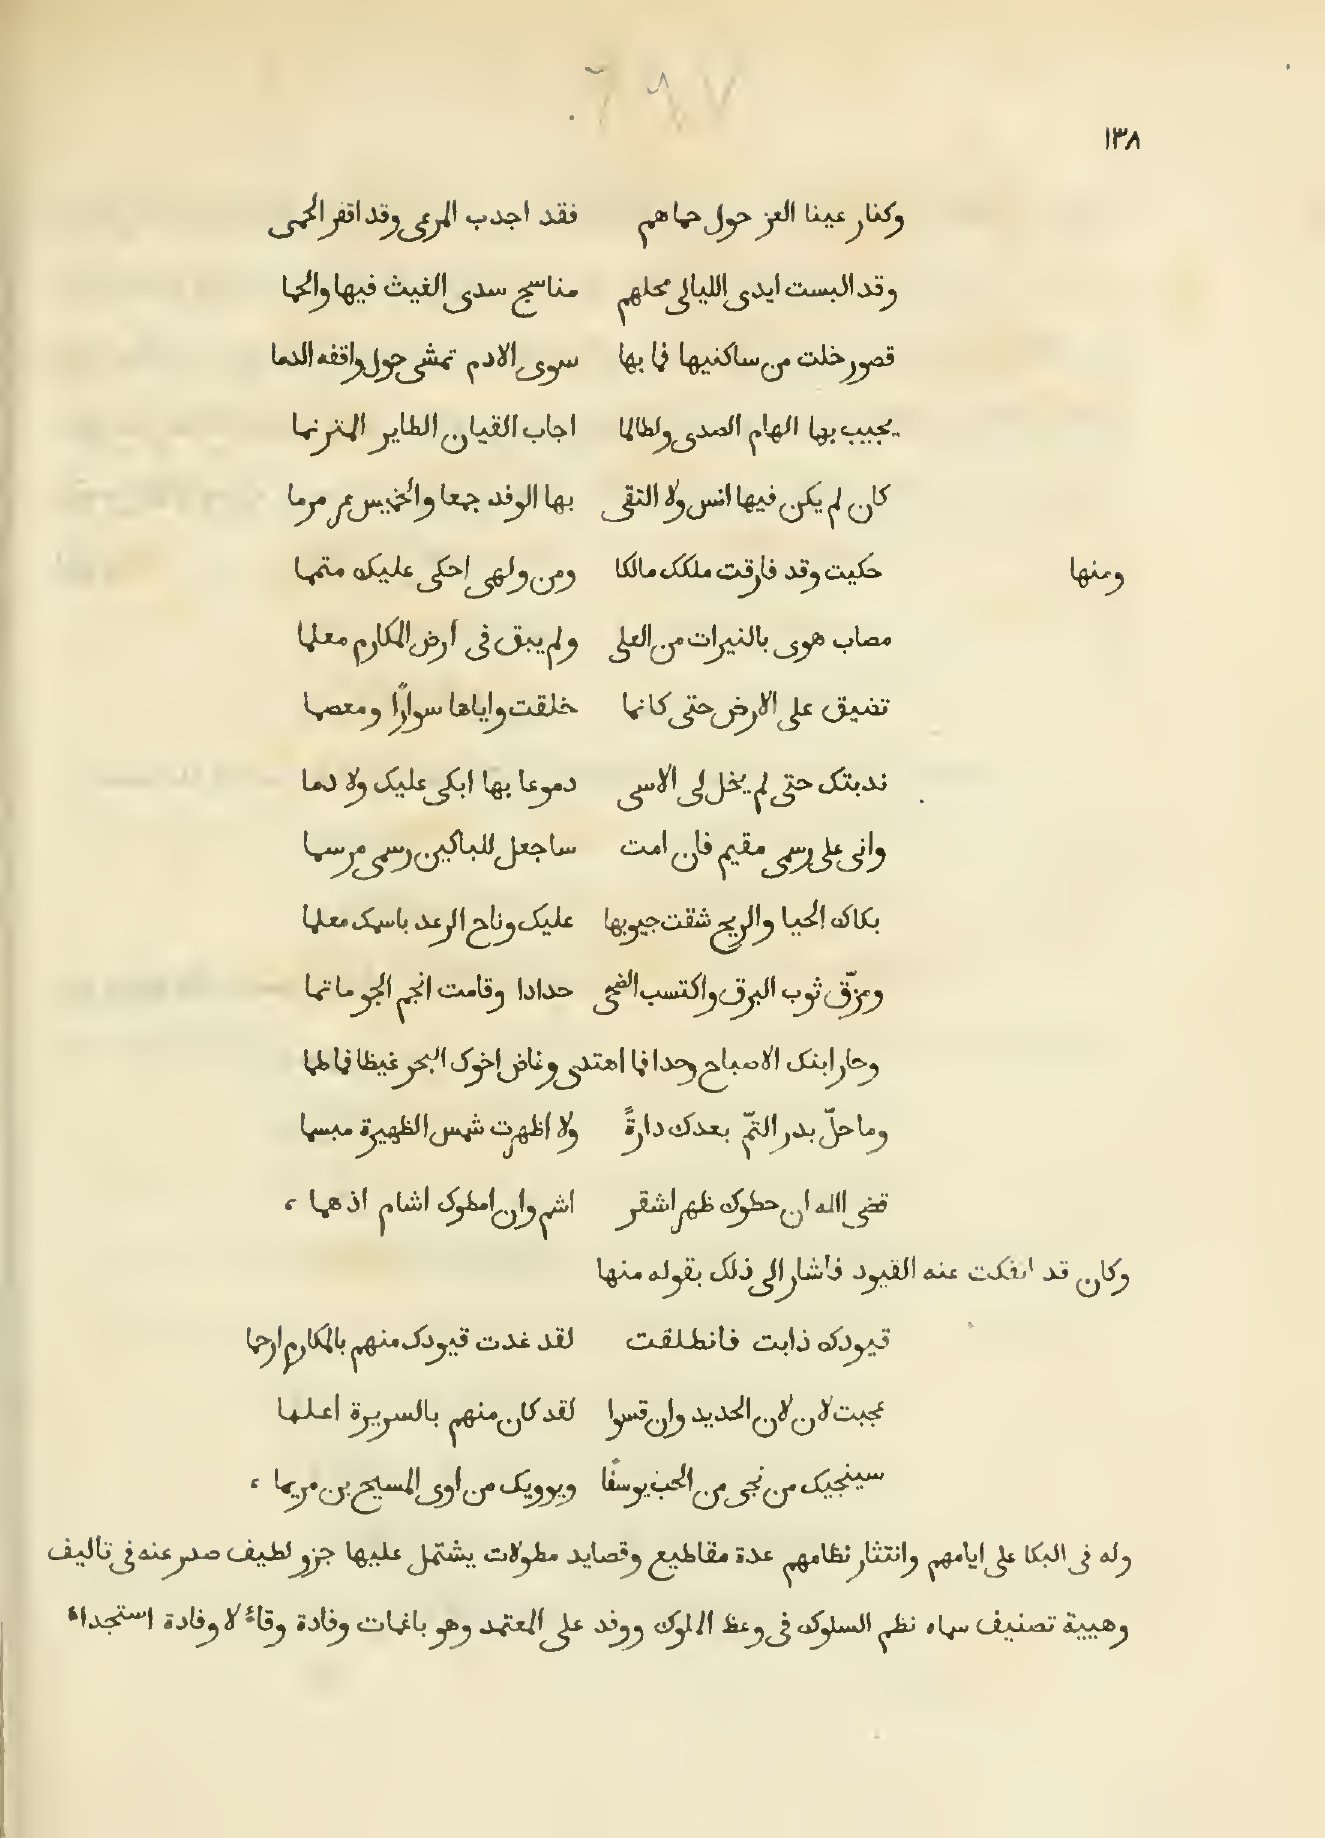 ١٣٨
وكنا رعينا العز حول حماهم فقد اجدب المرعى وقد اقفر الحمى
وقد البست ايدى الليالى محلهم مناسج سدى الغيث فيها والحما
قصور خلت من ساكنيها فما بها سوى الادم تمشى حول واقفه الدما
يجيب بها الهام الصدى ولطالما اجاب القيان الطاير المترنما
كان لم يكن فيها انس ولا التقى بها الوفد جمعا والخميس عرمرما
ومنها حكيت وقد فارقت ملكك مالكا ومن ولهى احكى عليك متمما
مصاب هوى بالنيرات من العلى ولم يبق فى أرض المكارم معلما
تضيق على الارض حتى كانما خلقت واياها سوارًا ومعصما
ندبتك حتى لم يخل لى الاسى دموعا بها ابكى عليك ولا دما
وانى على رسمى مقيم فان امت ساجعل للباكين رسمى مرسما
بكاك الحيا والريح شقت جيوبها عليك وناح الرعد باسمك معلما
ومزّق ثوب البرق واكتسب الضحى حدادا وقامت انجم الجو ماتما
وحار ابنك الاصباح وحدا فما اهتدى وغاض اخوك البحر غيظا فما طما
وما حلّ بدر التمّ بعدك دارةً ولا اظهرت شمس الظهيرة مبسما
قضى الله ان حطوك ظهر اشقر اشم وان امطوك اشام ادهما ،
وكان قد انفكت عنه القيود فاشار الى ذلك بقوله منها
قيودك ذابت فانطلقت لقد غدت قيودك منهم بالمكارم ارحما
عجبت لان لان الحديد وان قسوا لقد كان منهم بالسريرة اعلما
سينجيك من نجى من الجب يوسفًا ويوويك من اوى المسيح بن مريما ،
وله فى البكا على ايامهم وانتثار نظامهم عدة مقاطيع وقصايد مطولات يشتمل عليها جزو لطيف صدر عنه فى تاليف
وهيية تصنيف سماه نظم السلوك فى وعظ الملوك ووفد على المعتمد وهو باغمات وفادة وفاءٌ لا وفادة استجداءٌ